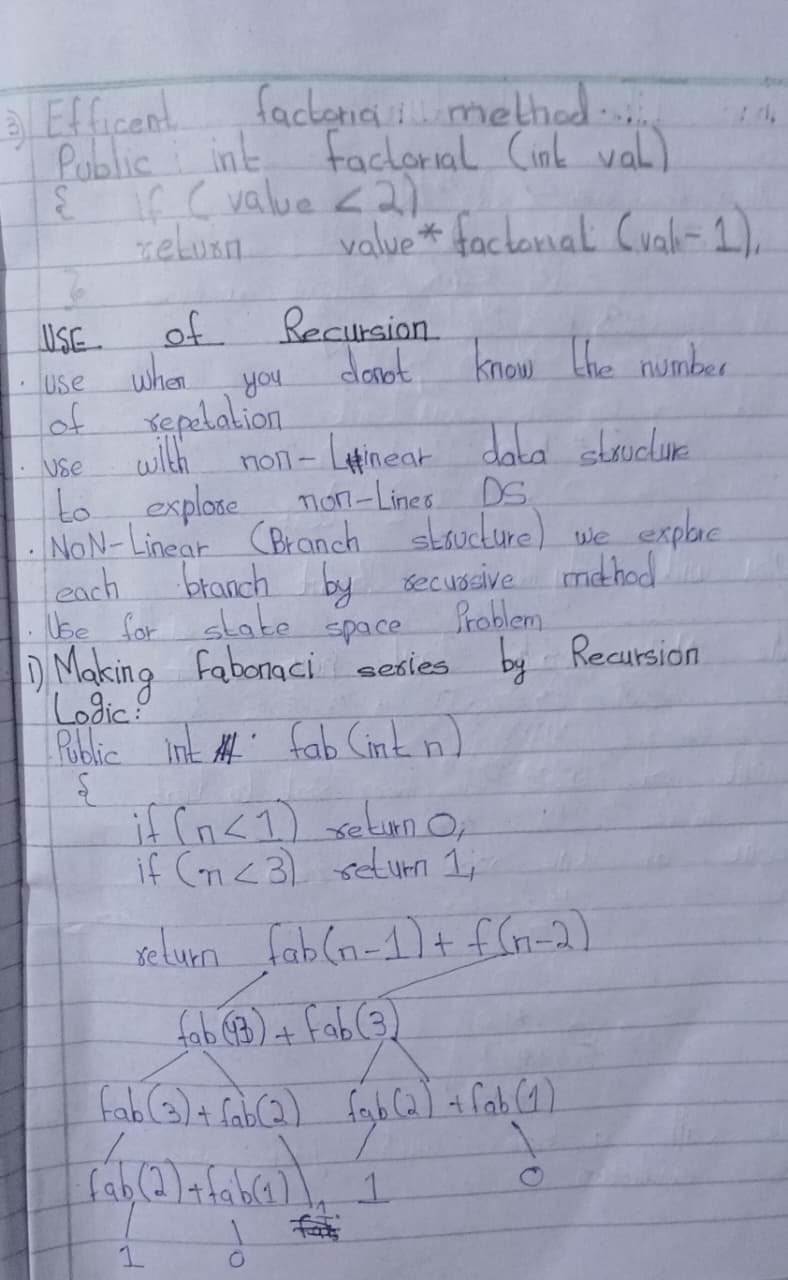 3) Efficent factorial method...
Public int factorial (int val)
{ if (value < 2)
return value * factorial (val - 1),
}
USE of Recursion
. use when you donot know the number
of repetation
. use with non-Linear data structure
to explore non-Liner DS
. NON-Linear (Branch structure) we explore
each branch by recursive method
. Use for state space Problem
1) Making Fabonaci series by Recursion
Logic:
Public int fab (int n)
{
if (n < 1) return 0;
if (n < 3) return 1;
return fab(n-1) + f(n-2)
fab(4) + fab(3)
fab(3) + fab(2) fab(2) + fab(1)
fab(2) + fab(1) 1 1 0
1 0